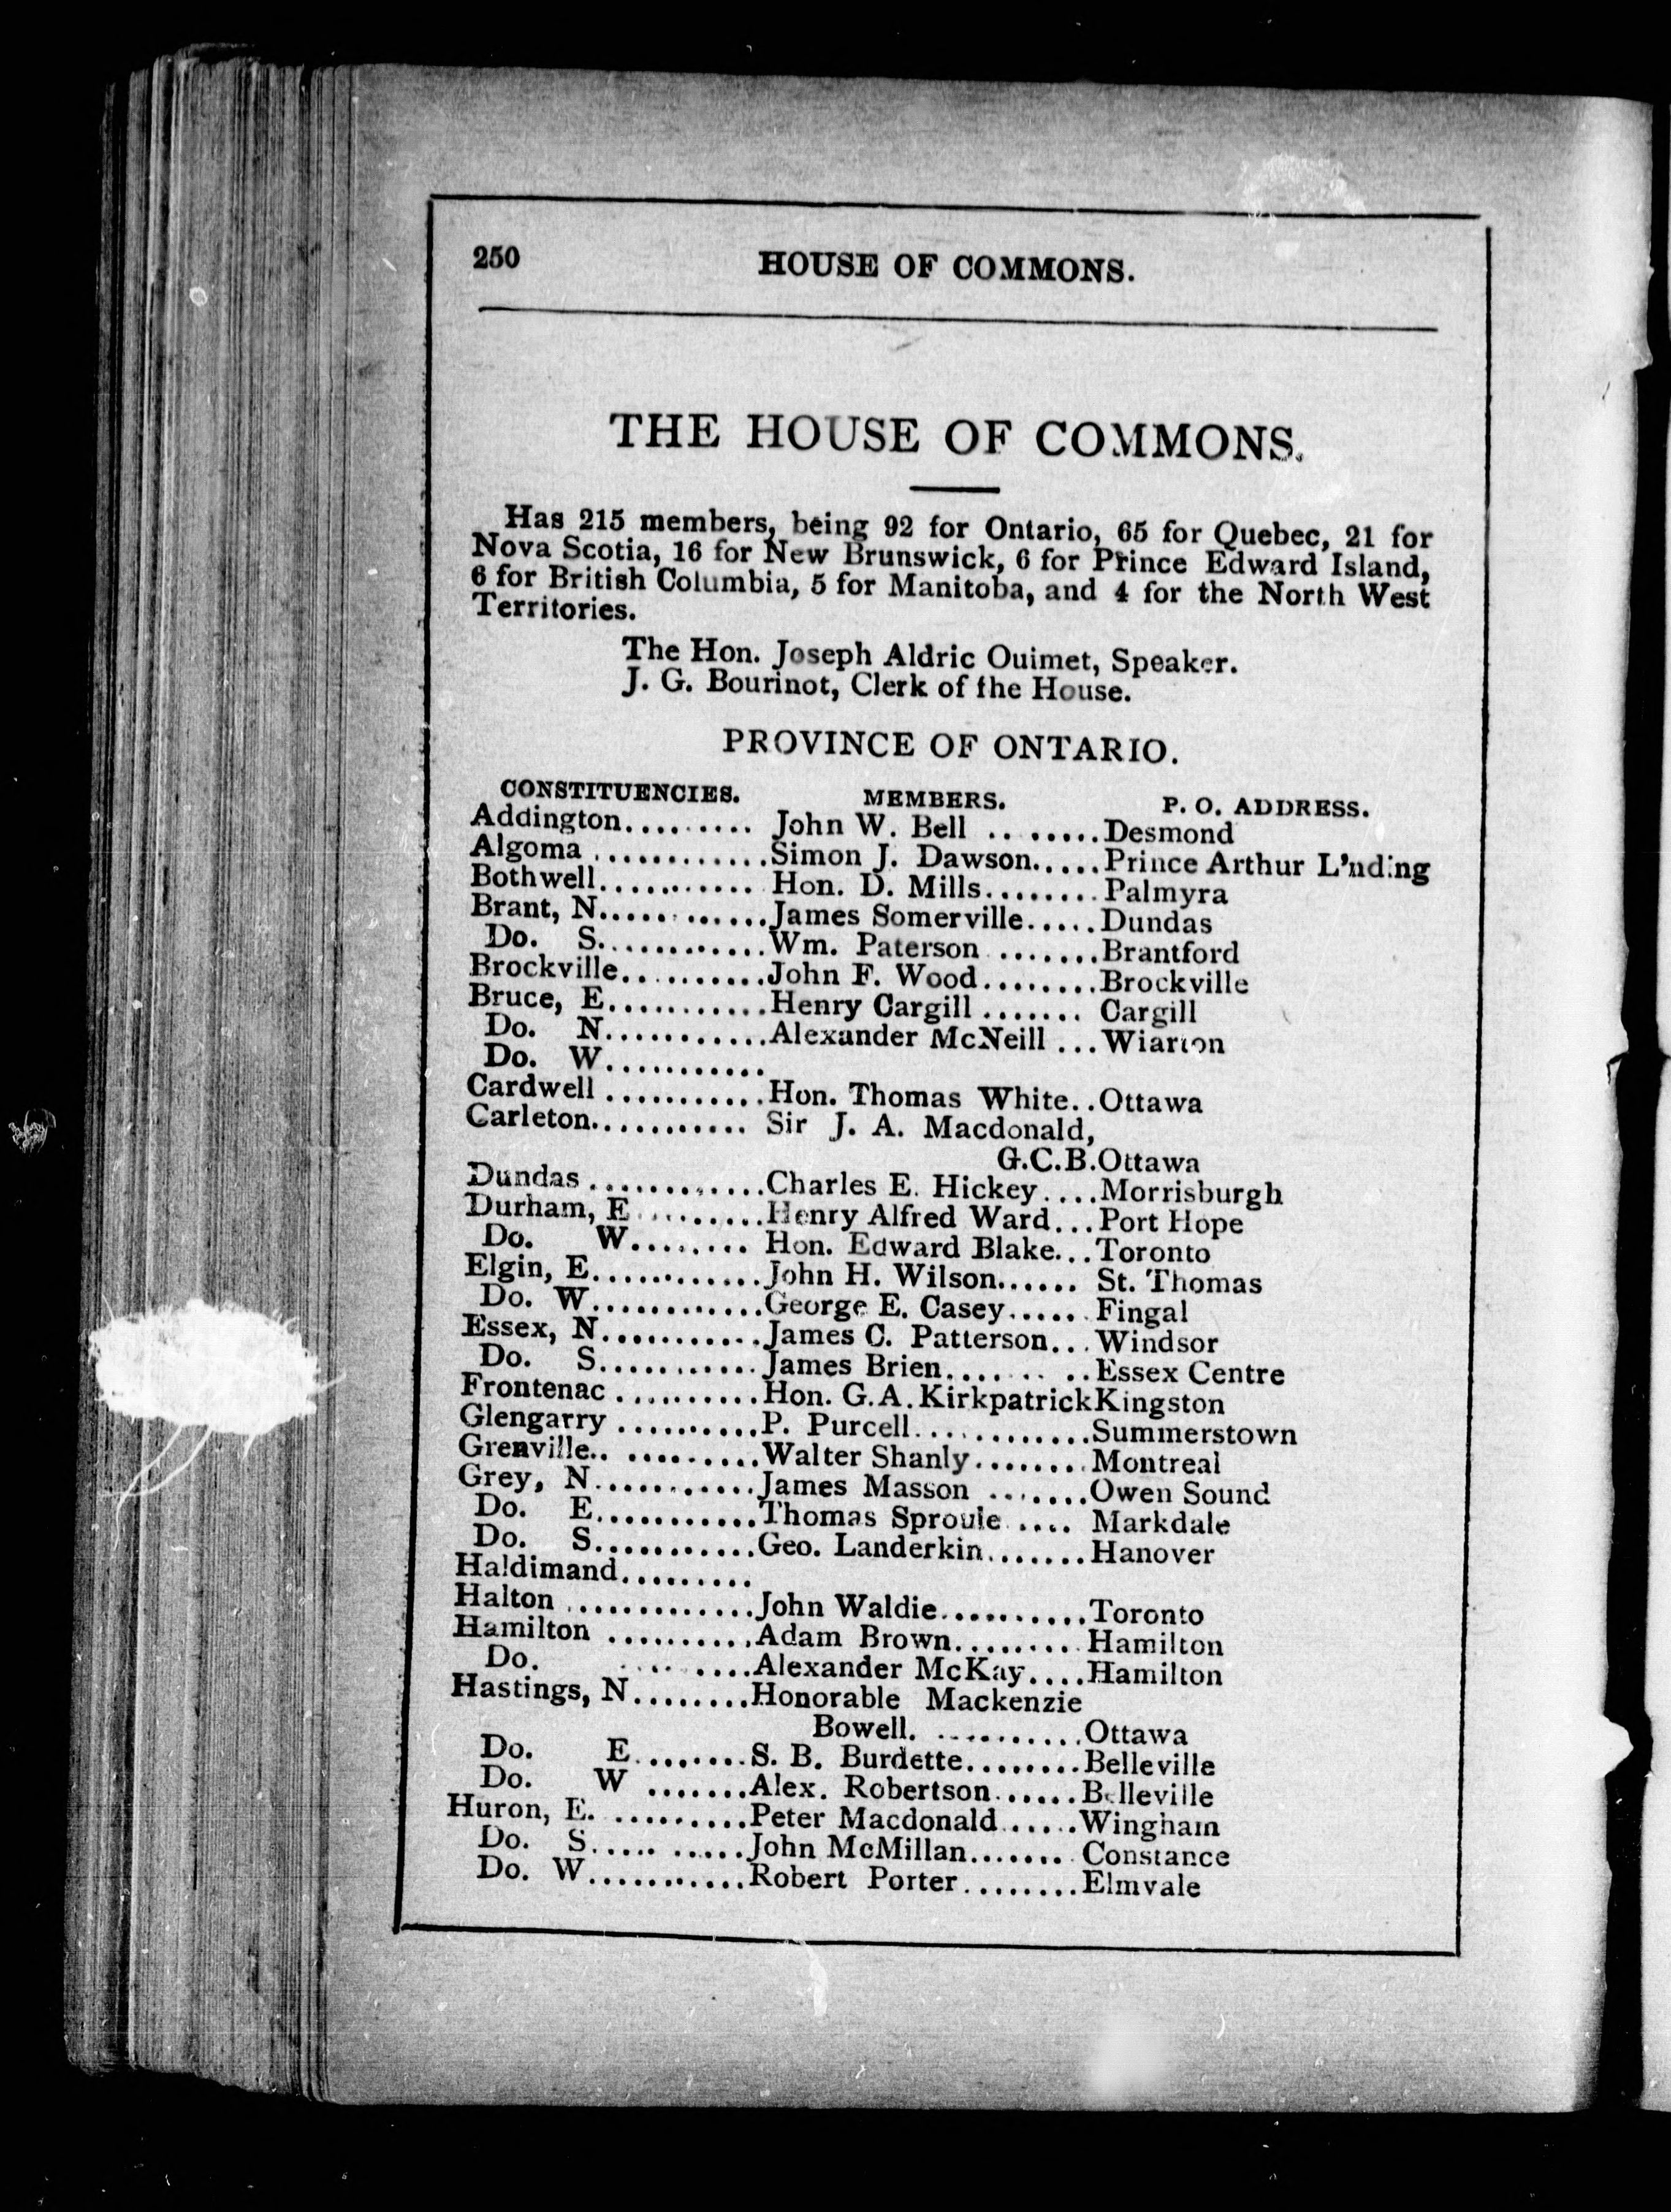 250 HOUSE OF COMMONS.
THE HOUSE OF COMMONS.
Has 215 members, being 92 for Ontario, 65 for Quebec, 21 for
Nova Scotia, 16 for New Brunswick, 6 for Prince Edward Island,
6 for British Columbia, 5 for Manitoba, and 4 for the North West
Territories.
The Hon. Joseph Aldric Ouimet, Speaker.
J. G. Bourinot, Clerk of the House.
PROVINCE OF ONTARIO.
CONSTITUENCIES. MEMBERS. P. O. ADDRESS.
Addington.......... John W. Bell ........Desmond
Algoma ............Simon J. Dawson.....Prince Arthur L'nding
Bothwell........... Hon. D. Mills........Palmyra
Brant, N............James Somerville.....Dundas
Do. S............Wm. Paterson .......Brantford
Brockville..........John F. Wood........Brockville
Bruce, E...........Henry Cargill ....... Cargill
Do. N...........Alexander McNeill ...Wiarton
Do. W...........
Cardwell ...........Hon. Thomas White..Ottawa
Carleton........... Sir J. A. Macdonald,
G.C.B.Ottawa
Dundas ............Charles E. Hickey....Morrisburgh
Durham, E .........Henry Alfred Ward...Port Hope
Do. W........ Hon. Edward Blake...Toronto
Elgin, E............John H. Wilson...... St. Thomas
Do. W............George E. Casey......Fingal
Essex, N...........James C. Patterson...Windsor
Do. S...........James Brien..........Essex Centre
Frontenac ..........Hon. G.A.KirkpatrickKingston
Glengarry ..........P. Purcell............Summerstown
Grenville.. .........Walter Shanly........Montreal
Grey, N...........James Masson .......Owen Sound
Do. E...........Thomas Sproule .... Markdale
Do. S...........Geo. Landerkin.......Hanover
Haldimand.........
Halton .............John Waldie..........Toronto
Hamilton ..........Adam Brown.........Hamilton
Do. .........Alexander McKay....Hamilton
Hastings, N........Honorable Mackenzie
Bowell. ...........Ottawa
Do. E........S. B. Burdette........Belleville
Do. W .......Alex. Robertson......Belleville
Huron, E. ..........Peter Macdonald.....Wingham
Do. S..... .....John McMillan....... Constance
Do. W...........Robert Porter........Elmvale